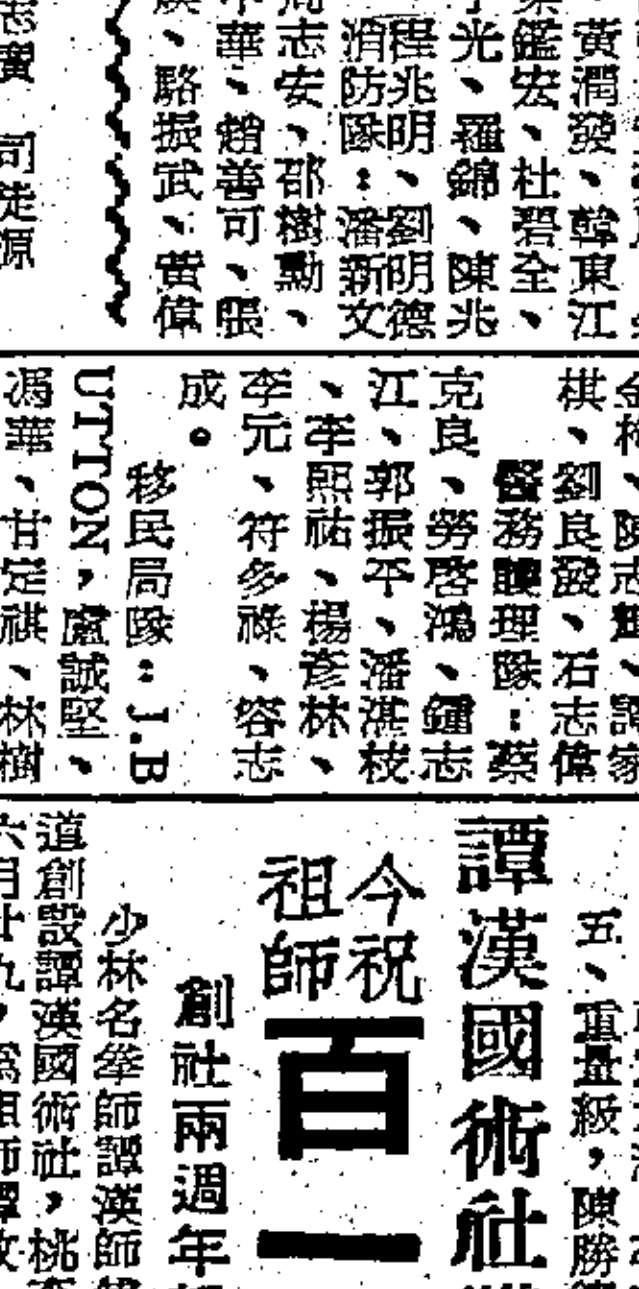 黃潤發、韓東江
鑑宏、杜碧全、
光、羅錦、陳兆
程兆明、劉明德
消防隊：潘新文
志安、邵樹勳、
華、趙善可、張
、駱振武、黃偉
志實 司徒源
金梅、陳志輝、譚家
棋、劉良發、石志偉
醫務護理隊：蔡
克良、勞啓鴻、鍾志
江、郭振平、潘湛枝
、李熙祐、楊彥林、
李元、符多祿、容志
成。
移民局隊：J.B
UTTON，盧誠堅，
馮華、甘定祺、林樹
五、重量級，陳勝
譚漢國術社
今祝
祖師
百一
創社兩週年
少林名拳師譚漢師
道創設譚漢國術社，桃
六月廿九，為祖師譚